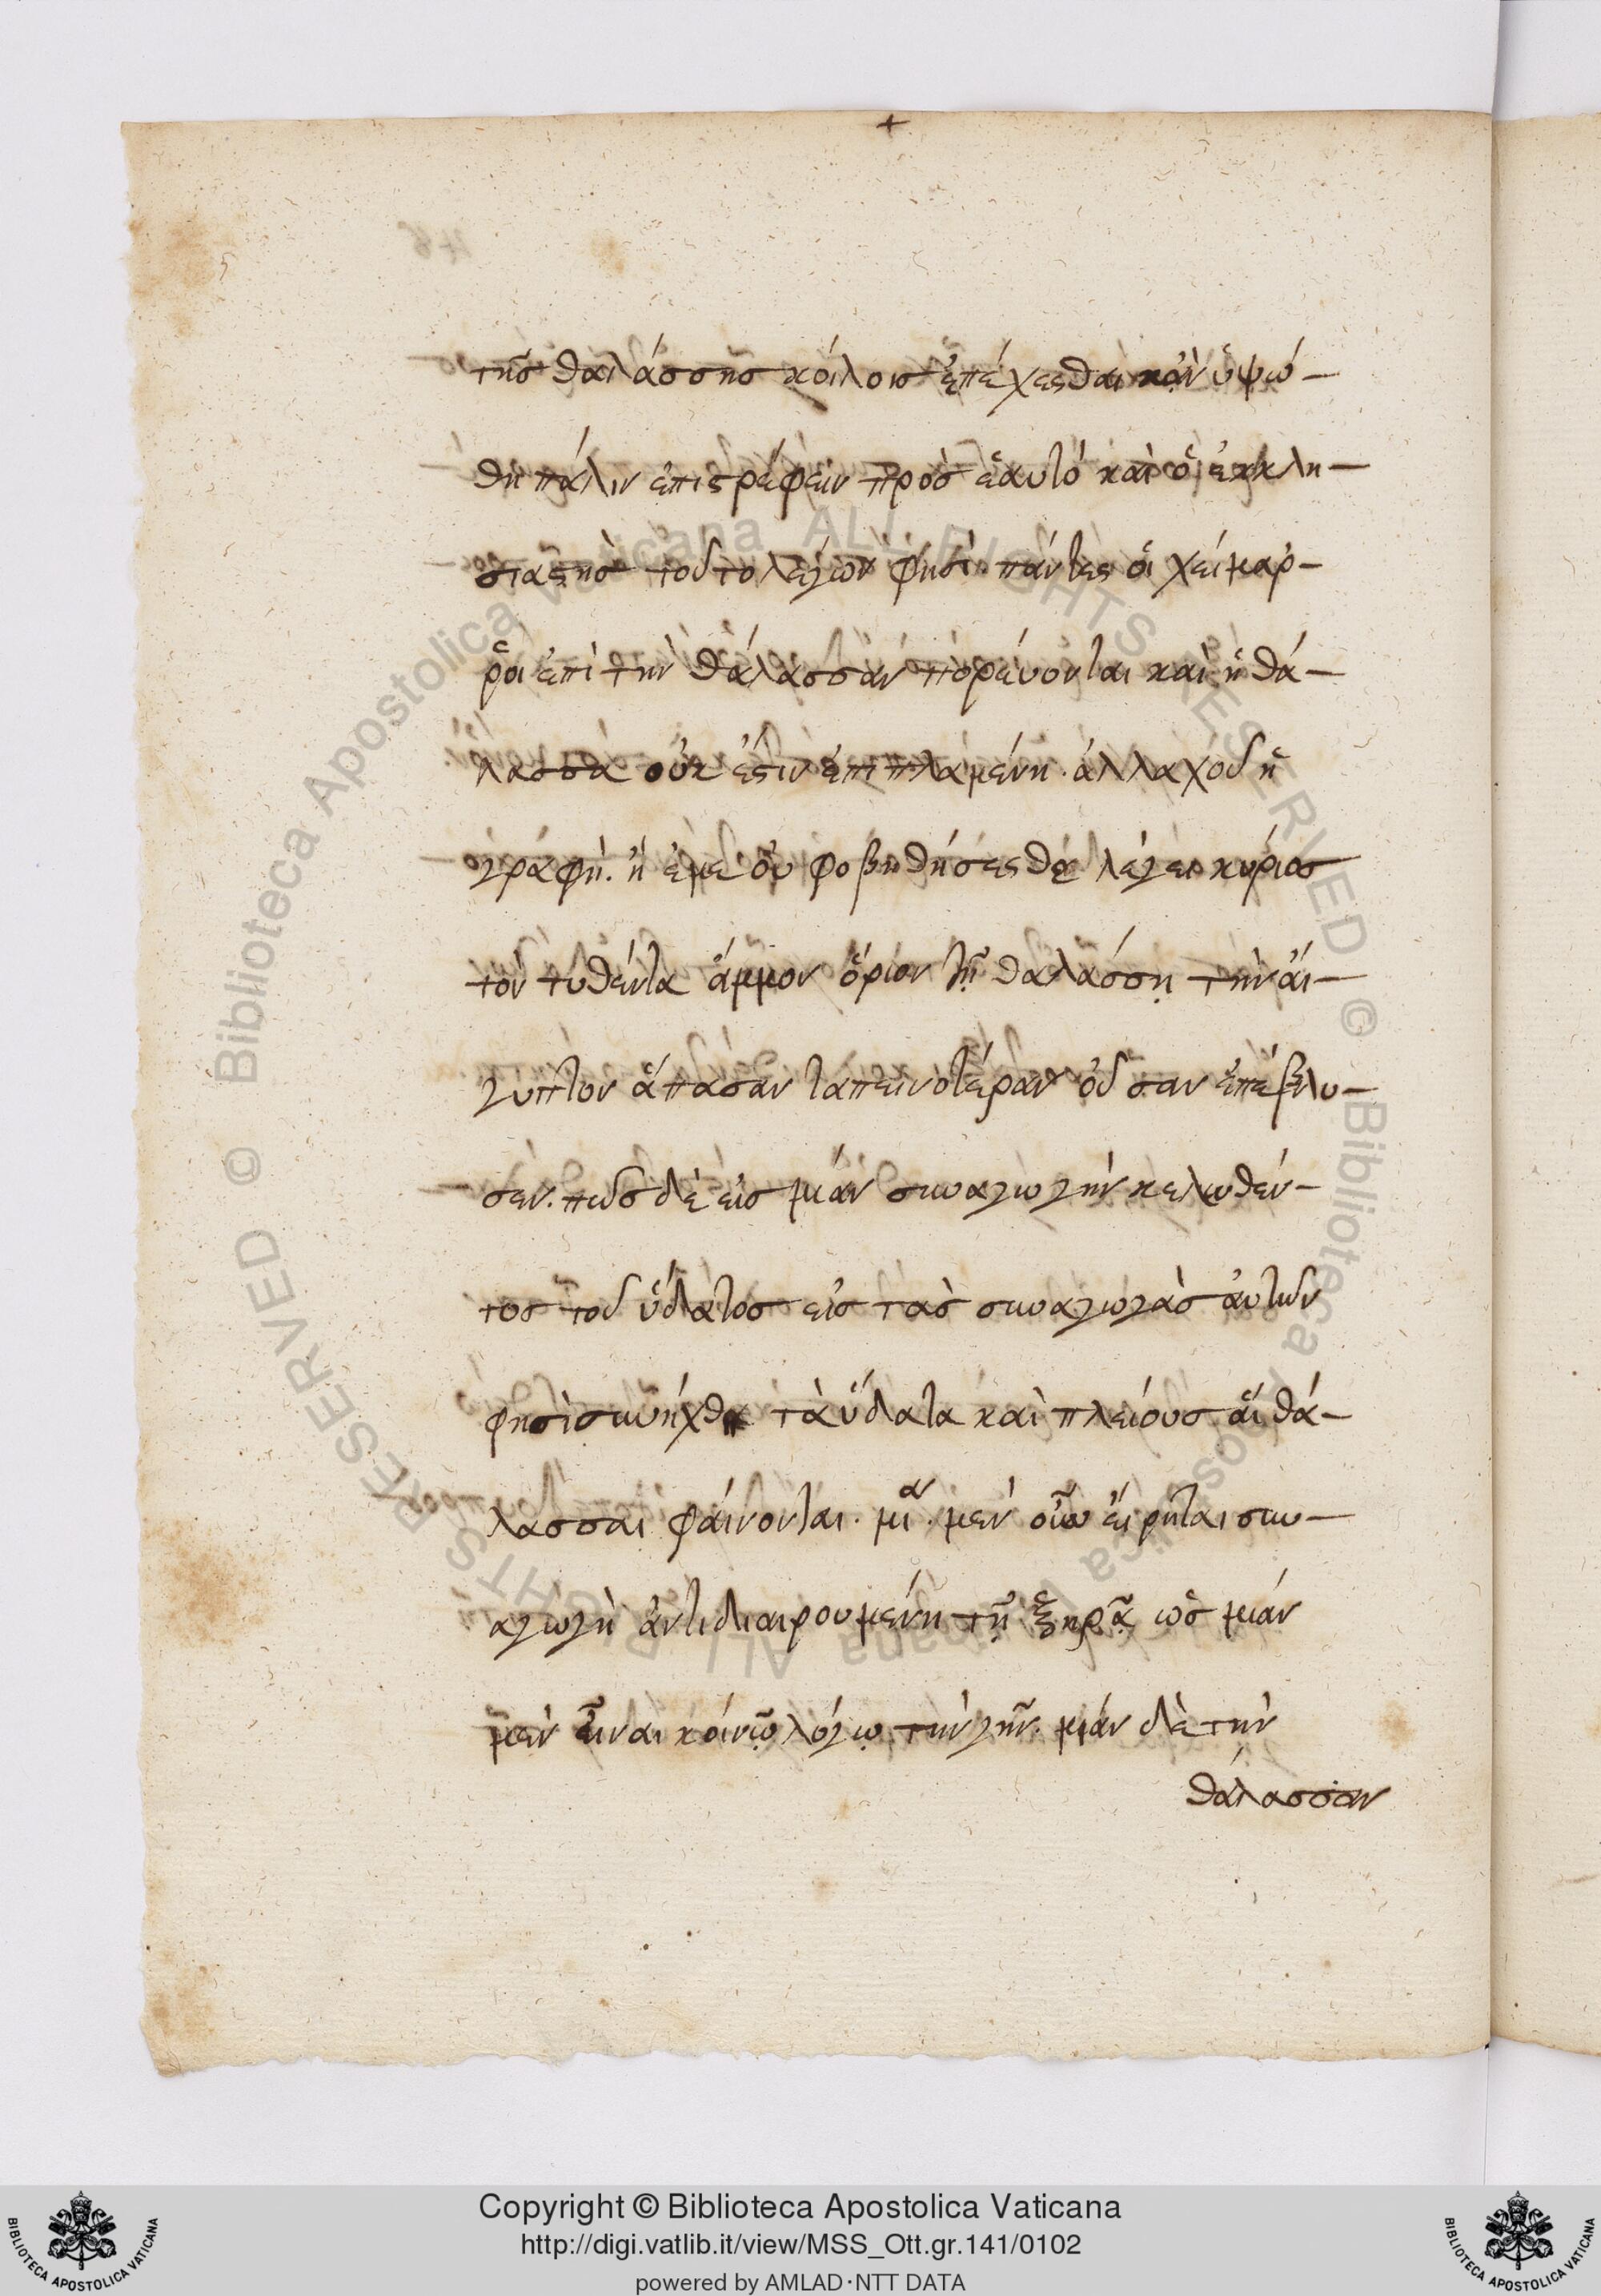 +
τῆς θαλάσσης κοίλοις ἐπέχεσθαι κἂν ὑψω-
θῇ πάλιν ἐπιστρέφειν πρὸς ἑαυτό καὶ ὁ ἐκκλη-
σιαστὴς τοῦτο λέγων φησί. πάντες οἱ χείμαρ-
ῥοι ἐπὶ τὴν θάλασσαν πορεύονται καὶ ἡ θά-
λασσα οὐκ ἔστιν ἐπιπλαμένη. ἀλλαχοῦ ἡ
γραφή. ἢ ἐμὲ οὐ φοβηθήσεσθε λέγει κύριος
τὸν τυθέντα ἄμμον ὅριον τῇ θαλάσσῃ τὴν αἴ-
γυπτον ἅπασαν ταπεινοτέραν οὖσαν ἐπέβλυ-
σεν. πῶς δὲ εἰς μίαν συναγωγὴν κελευθέν-
τος τοῦ ὕδατος εἰς τὰς συναγωγὰς αὐτῶν
φησὶ συνήχθη τὰ ὕδατα καὶ πλείους αἱ θά-
λασσαι φαίνονται. μία. μὲν οὖν εἴρηται συν-
αγωγὴ ἀντιδιαιρουμένη τῇ ξηρᾷ ὡς μίαν
μὲν εἶναι κοινῷ λόγῳ τὴν γῆν. μίαν δὲ τὴν
θάλασσαν
Copyright © Biblioteca Apostolica Vaticana
http://digi.vatlib.it/view/MSS_Ott.gr.141/0102
powered by AMLAD·NTT DATA